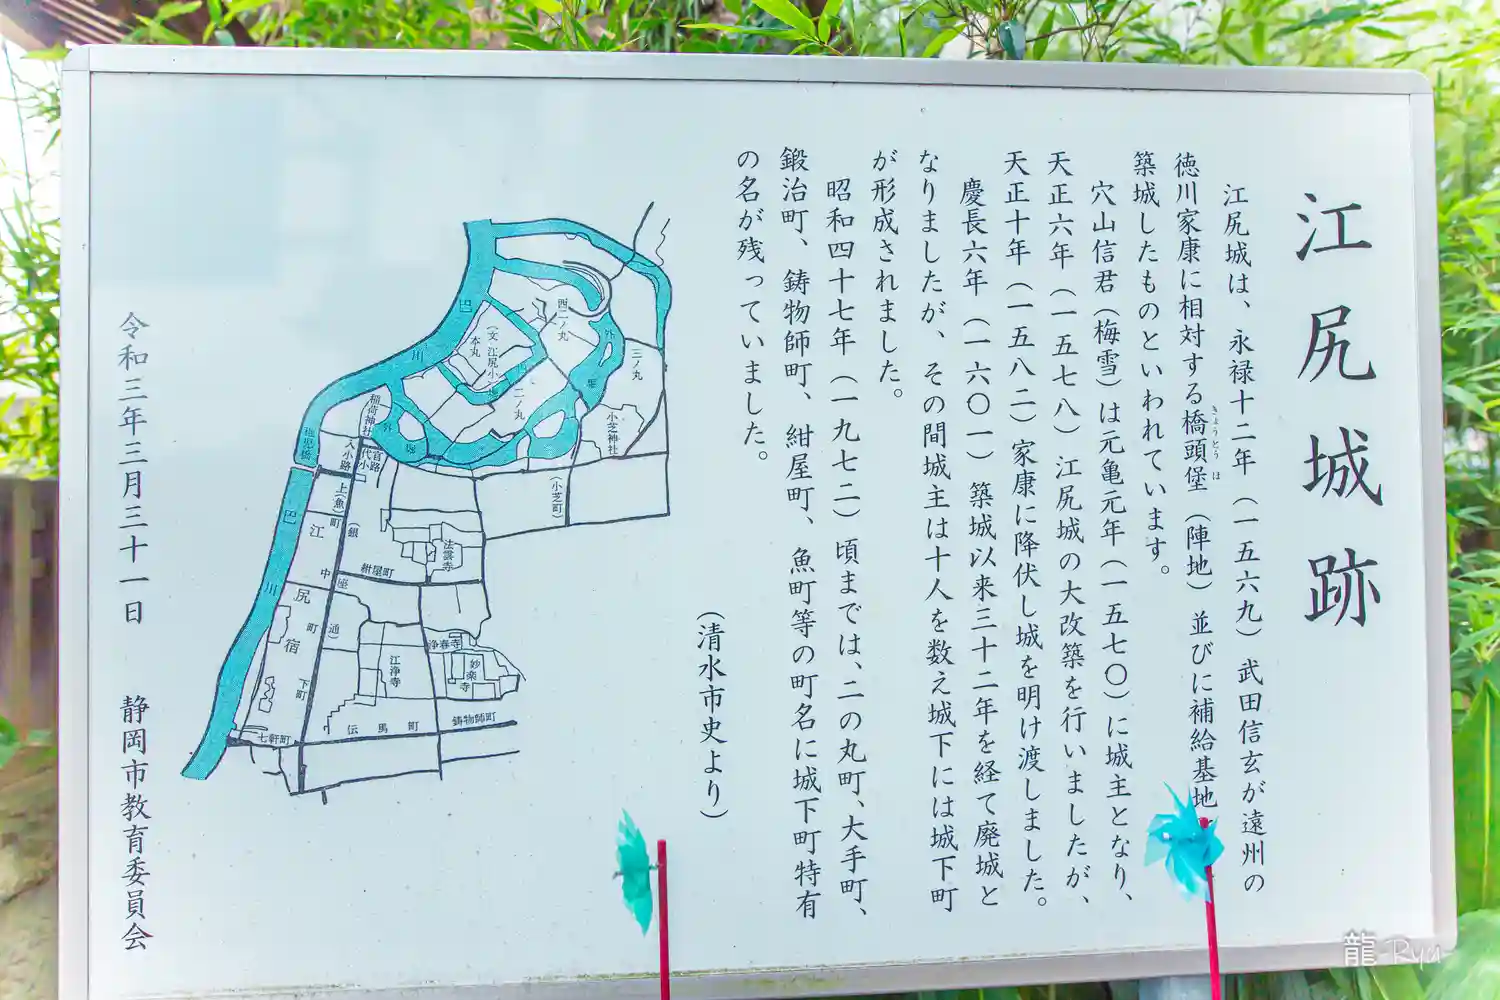 江尻城跡
江尻城は、永禄十二年（一五六九）武田信玄が遠州の
徳川家康に相対する橋頭堡（陣地）並びに補給基地
きょうとうほ
築城したものといわれています。
穴山信君（梅雪）は元亀元年（一五七〇）に城主となり、
天正六年（一五七八）江尻城の大改築を行いましたが、
天正十年（一五八二）家康に降伏し城を明け渡しました。
慶長六年（一六〇一）築城以来三十二年を経て廃城と
なりましたが、その間城主は十人を数え城下には城下町
が形成されました。
昭和四十七年（一九七二）頃までは、二の丸町、大手町、
鍛冶町、鋳物師町、紺屋町、魚町等の町名に城下町特有
の名が残っていました。
（清水市史より）
巴
川
本丸
（文 江尻小
西二ノ丸
二ノ丸
三ノ丸
外
堀
外
堀
小芝神社
（小芝町）
稲荷神社
稚児橋
入小路
代官小路
上（魚）町
（銀座通）
巴
川
江尻宿
中町
下町
紺屋町
法雲寺
江浄寺
浄春寺
妙楽寺
伝馬町
鋳物師町
七軒町
令和三年三月三十一日　静岡市教育委員会
龍 Ryu